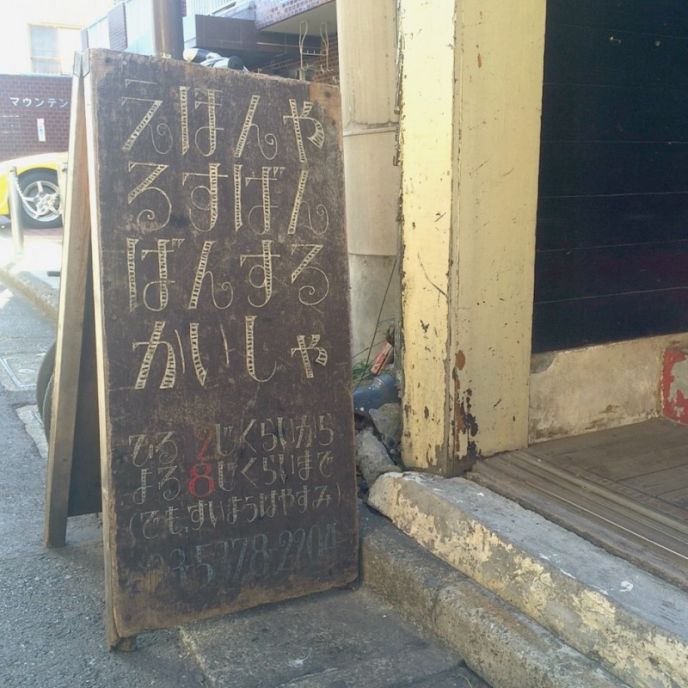 マウンテン
えほんや
るすばん
ばんする
かいしゃ
ひる 2じくらいから
よる 8じくらいまで
(でも、すいようはやすみ)
03-5378-2204